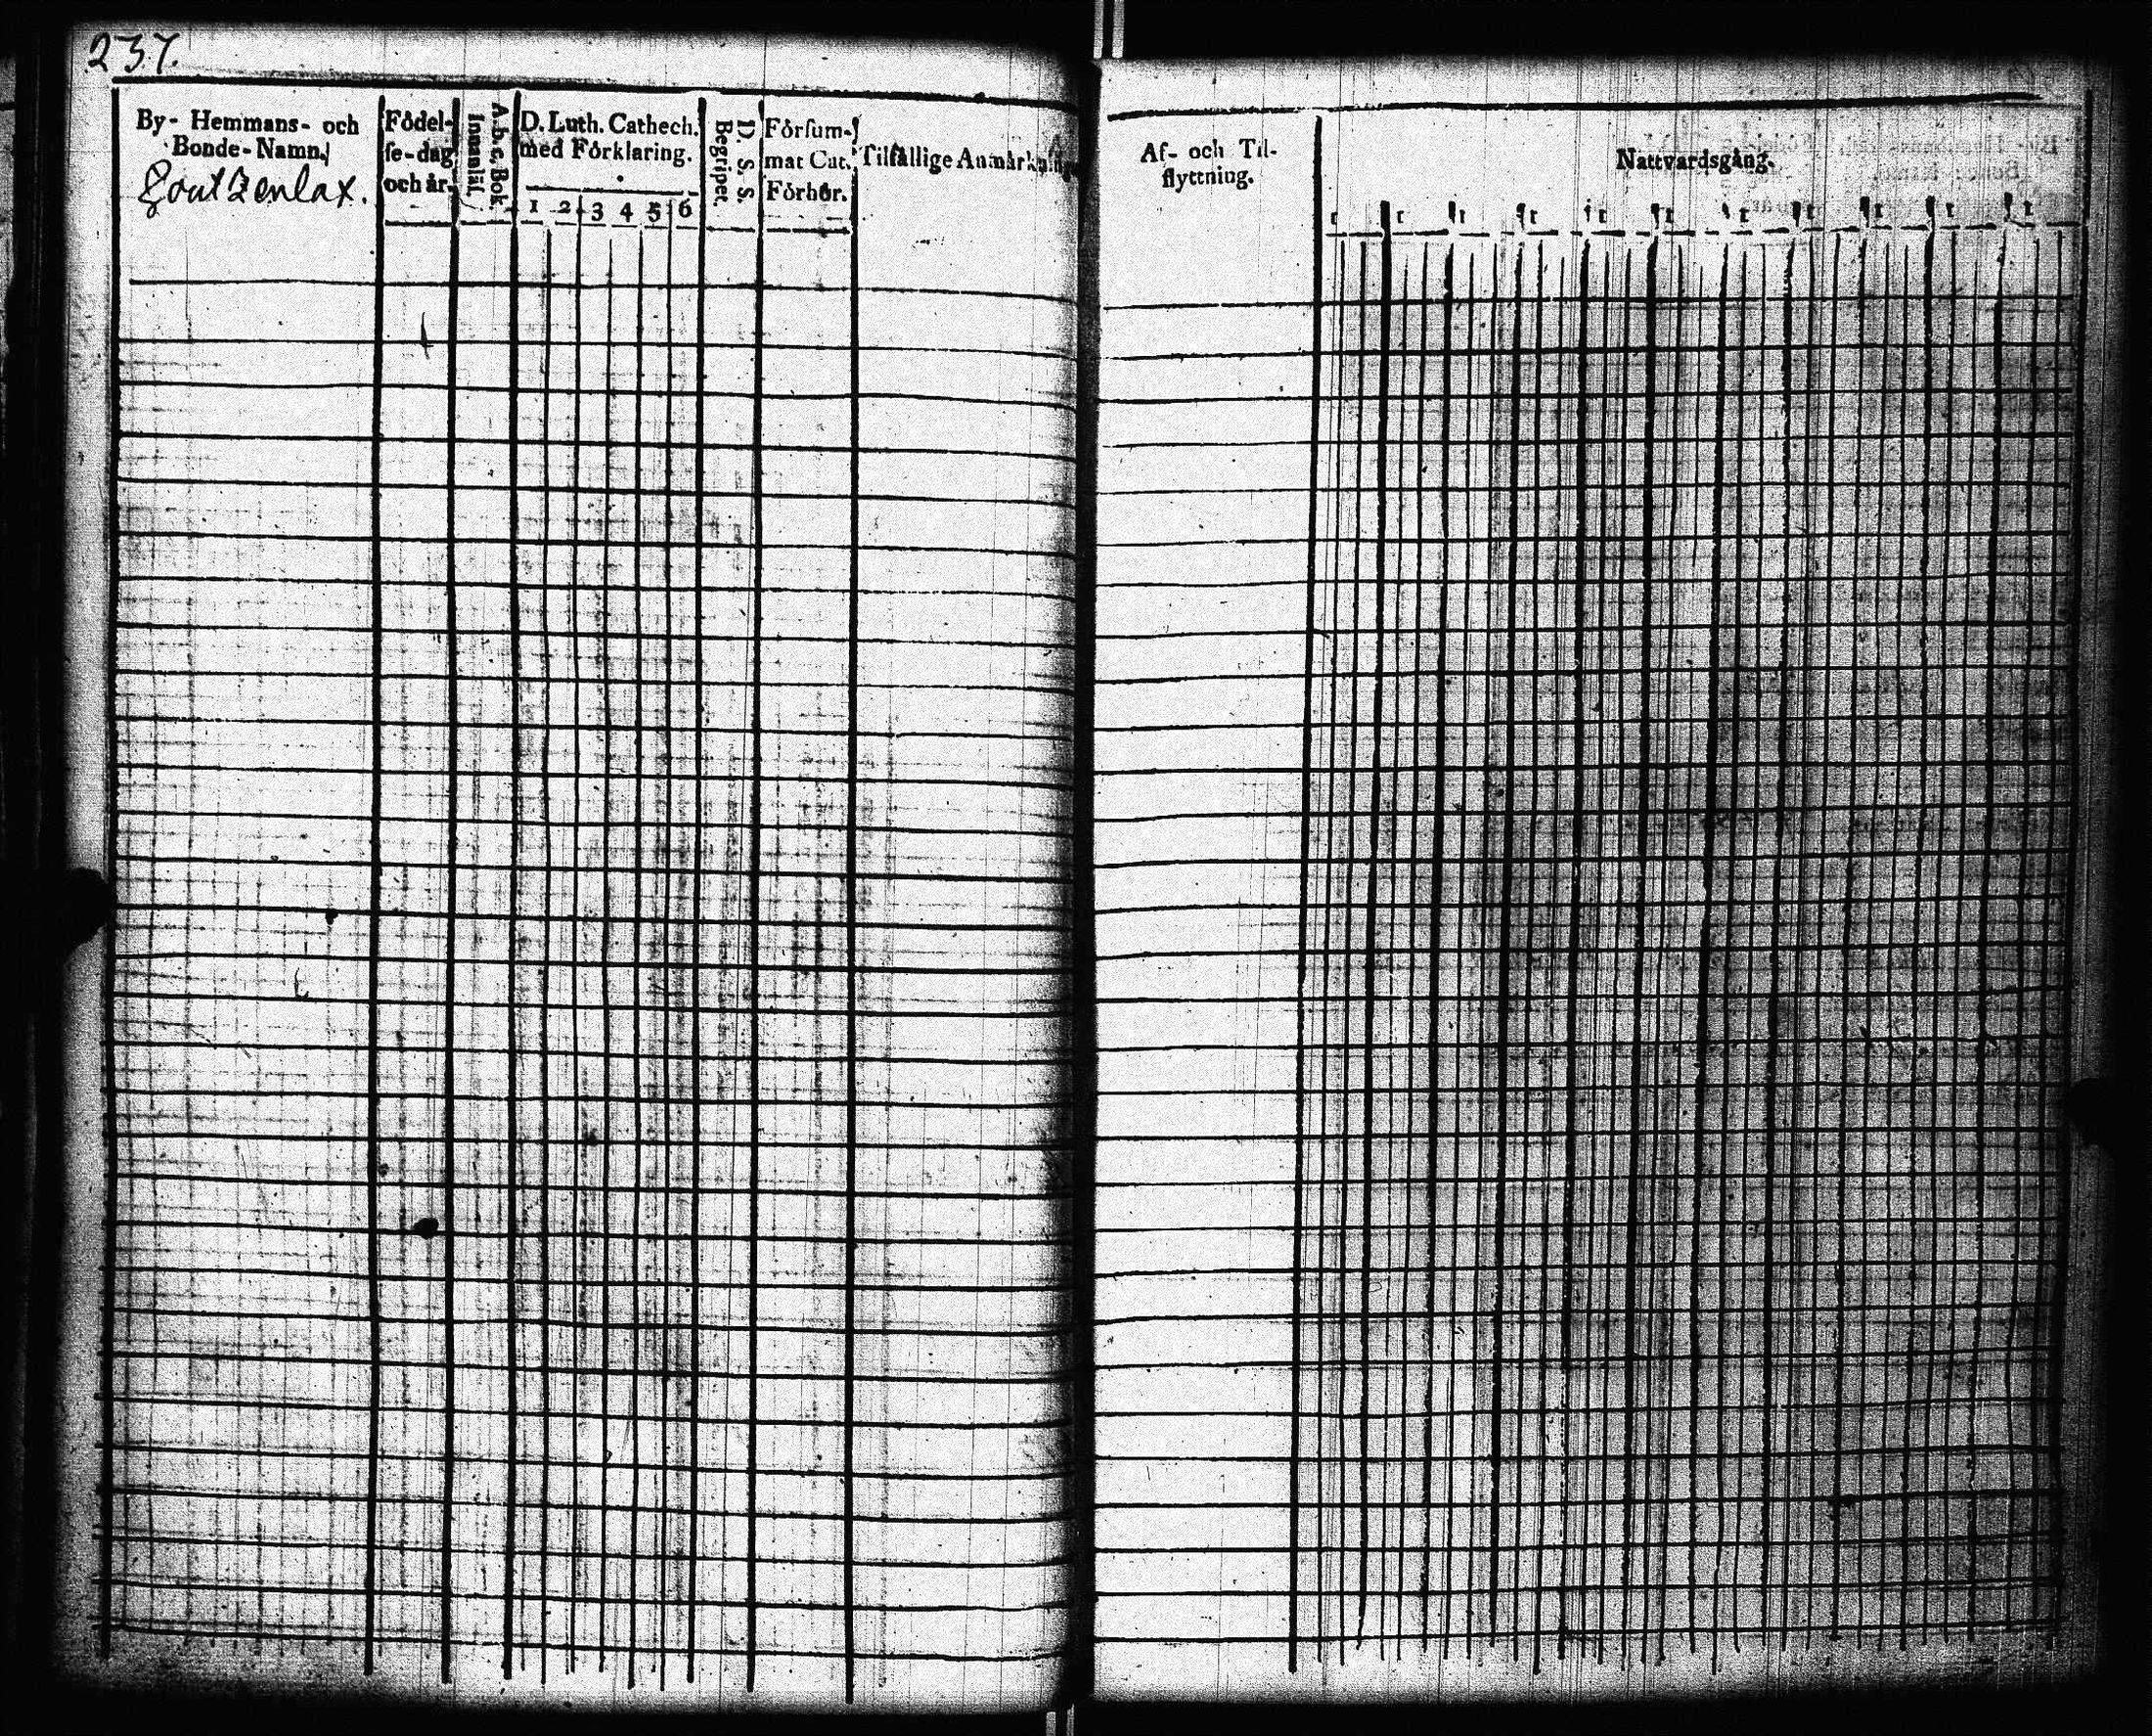 237.
By- Hemmans- och
Bonde-Namn.
Födel-
se-dag
och år.
Innanläs.
A-b-c-Bok.
D. Luth. Cathech.
med Förklaring.
1 2 3 4 5 6
D. S. S.
Begripet.
Försum-
mat Cat.
Förhör.
Tilfällige Anmärkningar
Af- och Til-
flyttning.
Nattvardsgång.
1 1 1 1 1 1 1 1 1 1 1